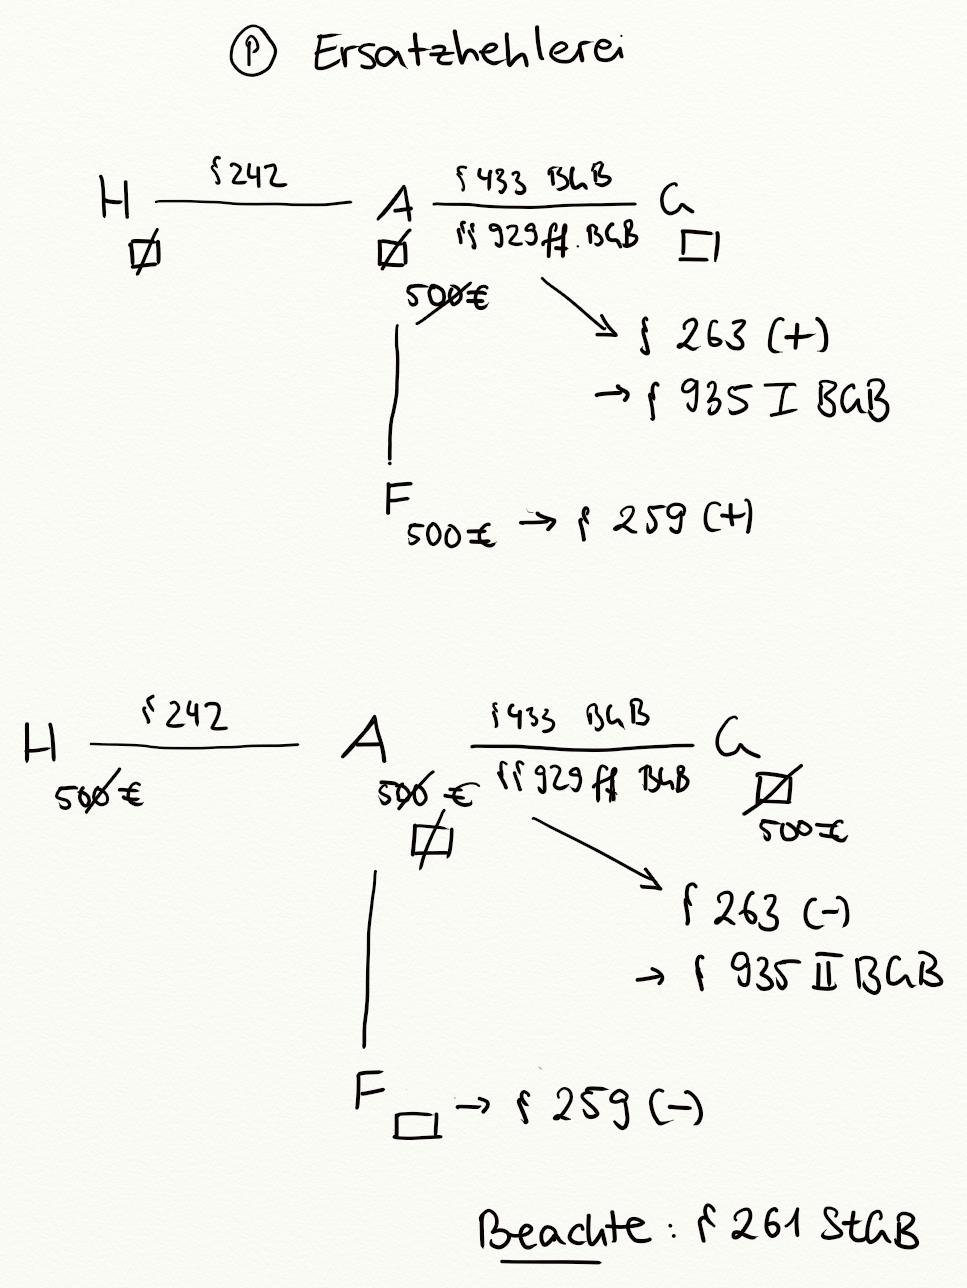 Ⓟ Ersatzhehlerei
H § 242 A § 433 BGB G
§§ 929 ff. BGB
500€
§ 263 (+)
→ § 935 I BGB
F 500€ → § 259 (+)
H § 242 A § 433 BGB G
500€ 500€ §§ 929 ff BGB
500€
§ 263 (-)
→ § 935 II BGB
F → § 259 (-)
Beachte: § 261 StGB